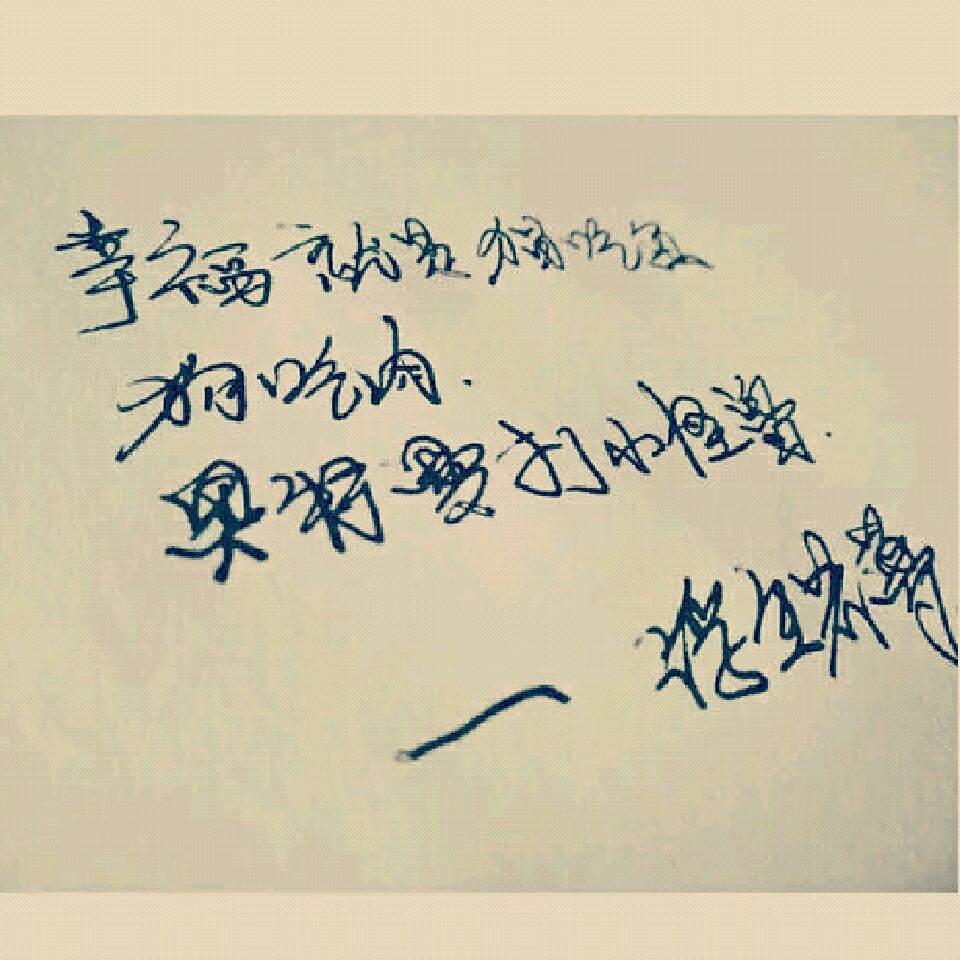 幸福就是猫吃鱼
狗吃肉.
奥特曼打小怪兽.
一